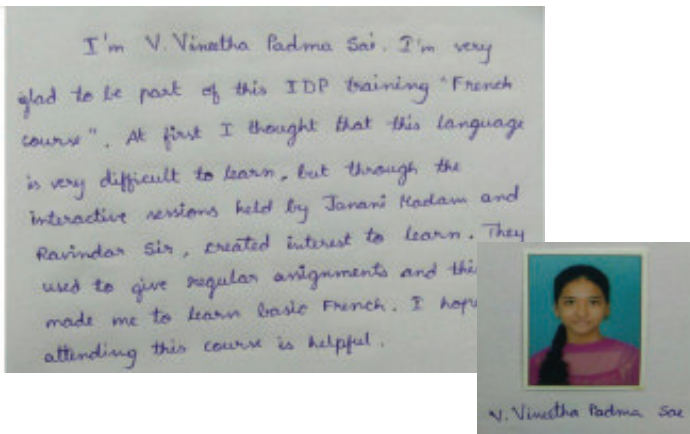 I'm V. Vineetha Padma Sai. I'm very
glad to be part of this IDP training "French
course". At first I thought that this language
is very difficult to learn, but through the
interactive sessions held by Janani Madam and
Ravindar Sir, created interest to learn. They
used to give regular assignments and
made me to learn basic French. I hope
attending this course is helpful.
V. Vineetha Padma Sai